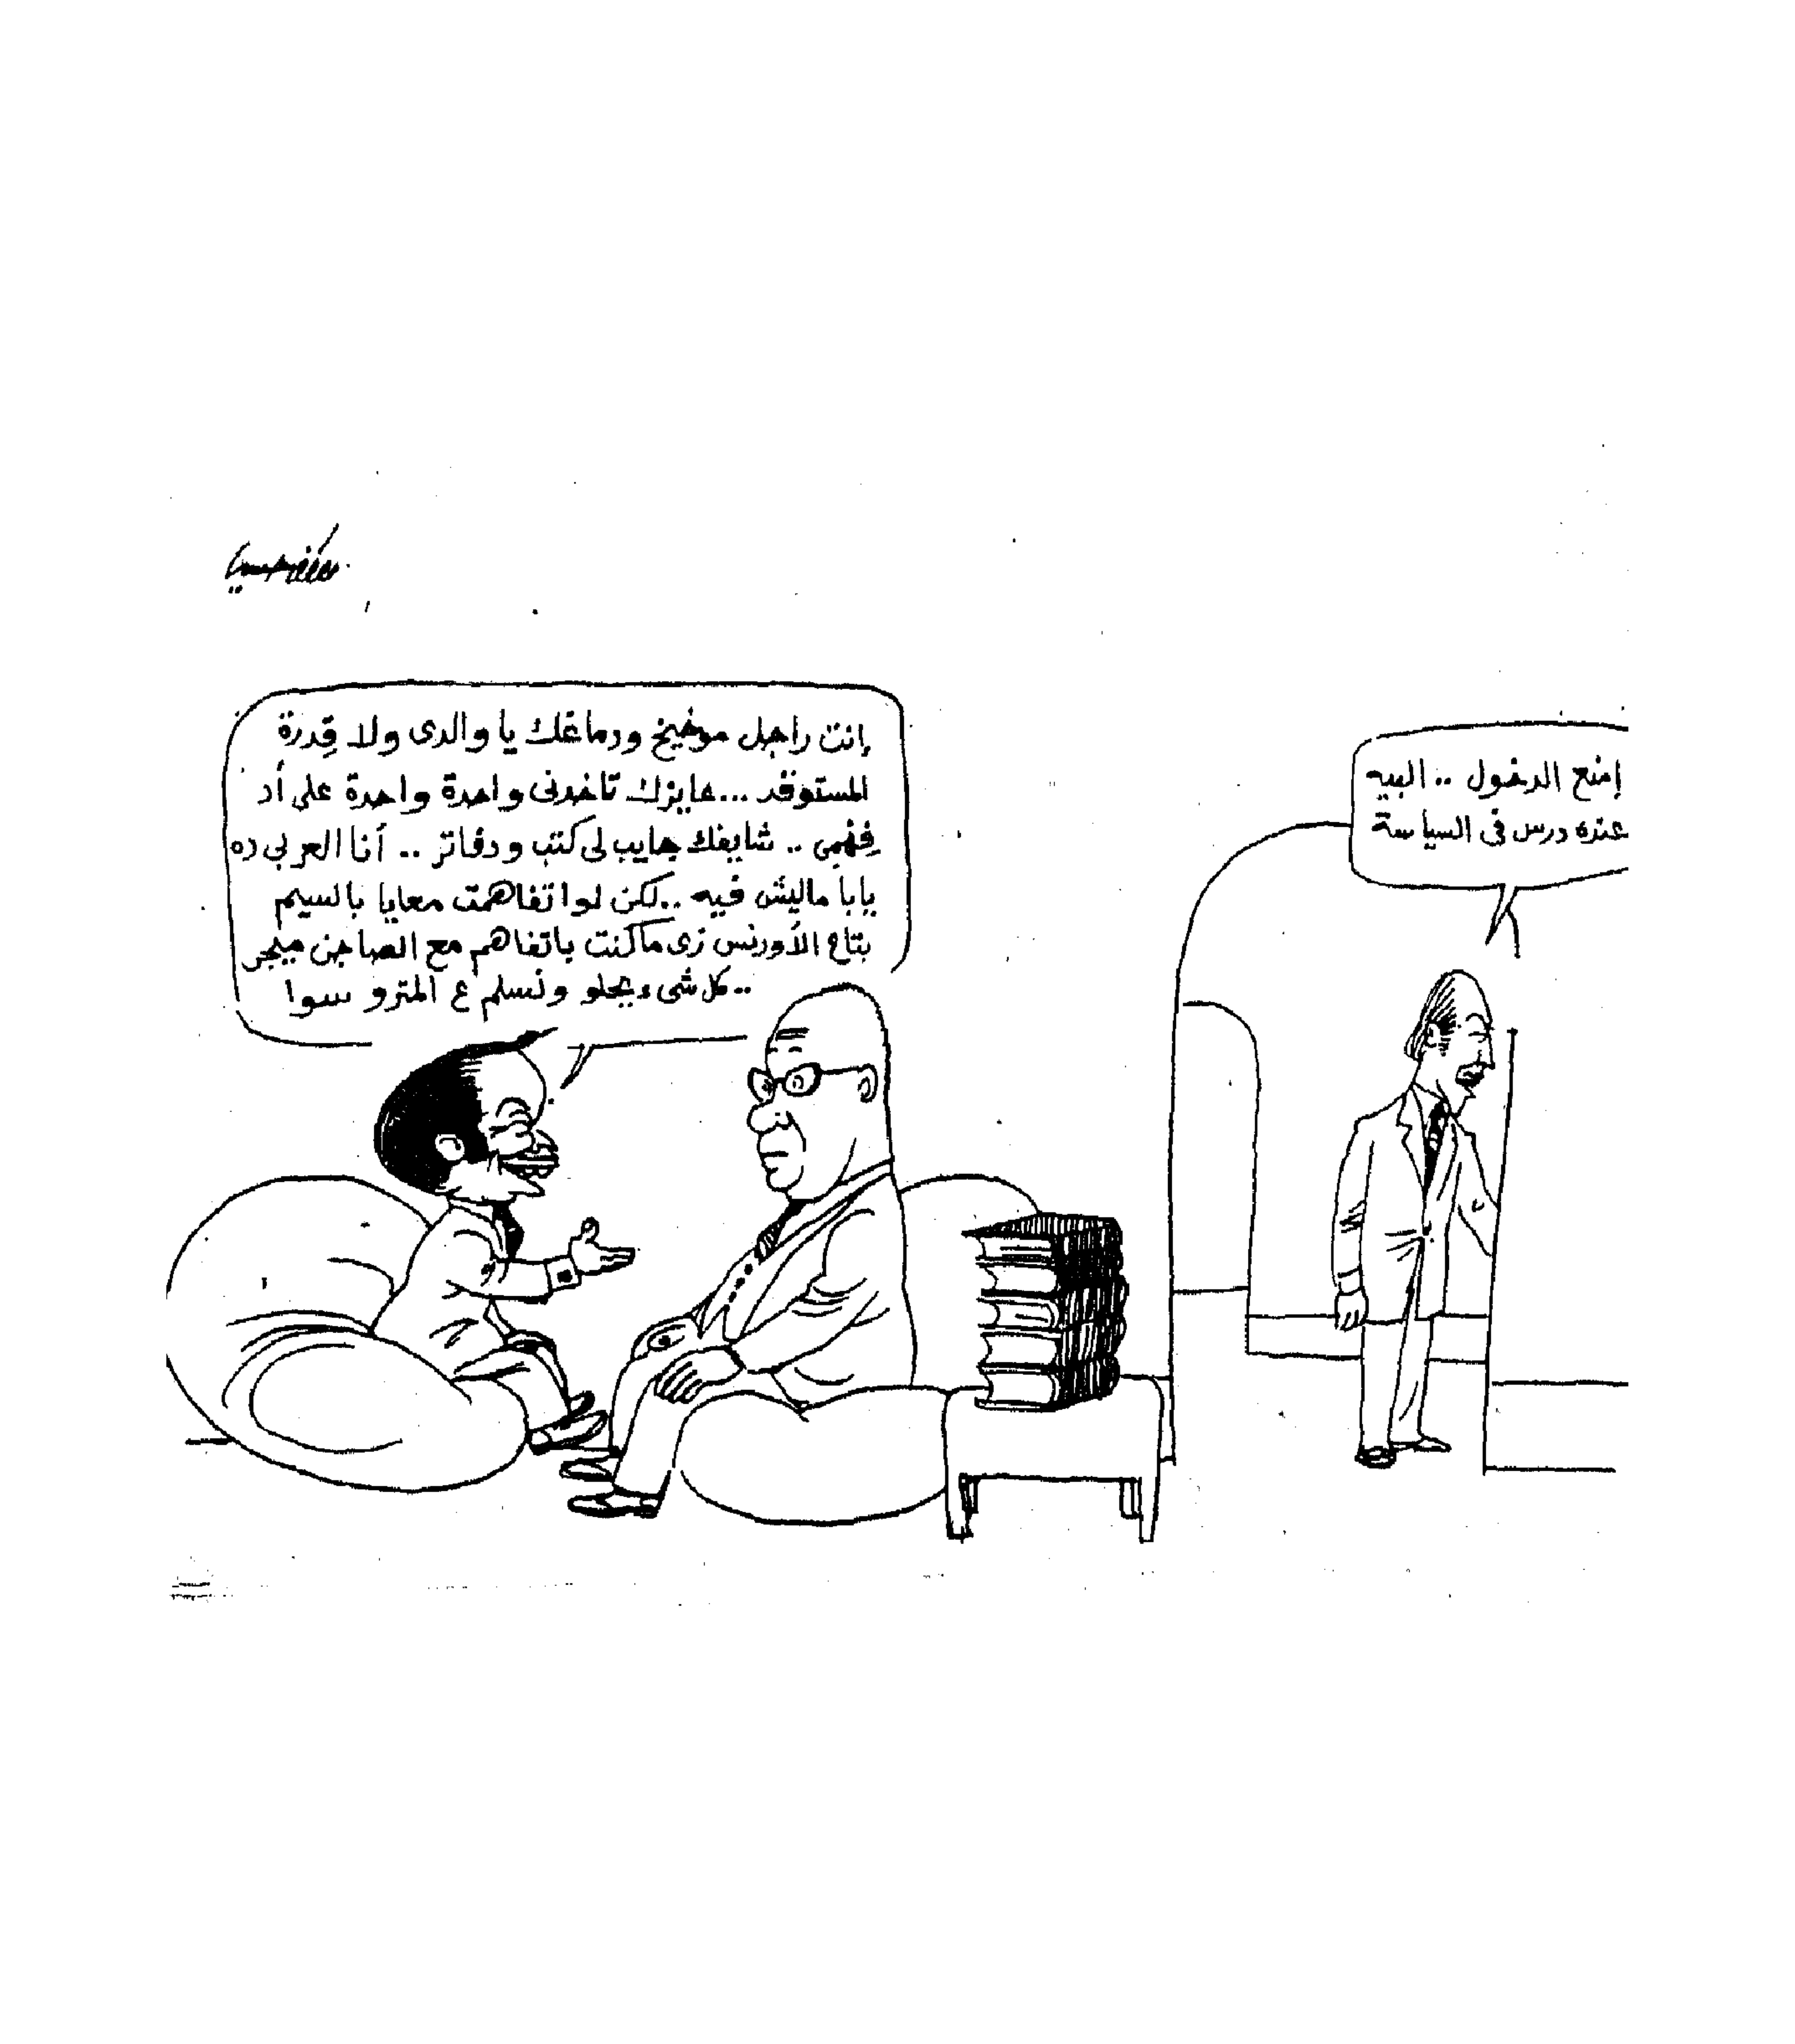 إمنع الدخول .. البيه
عنده درس فى السياسة
إنت راجل موضيخ ودماغك يا والدى ولا قِدرة
المستوقد ... عايزك تاخدنى واحدة واحدة على أد
فِهْمِى .. شايفك جايب لى كتب ودفاتر .. أنا العربى ده
يابا ماليش فيه .. لكن لو اتفاهمت معايا بالسيم
بتاع الأورنس زى ما كنت باتفاهم مع الصاجن ميجر
.. كل شىء يحلو ونسلم ع المترو سوا